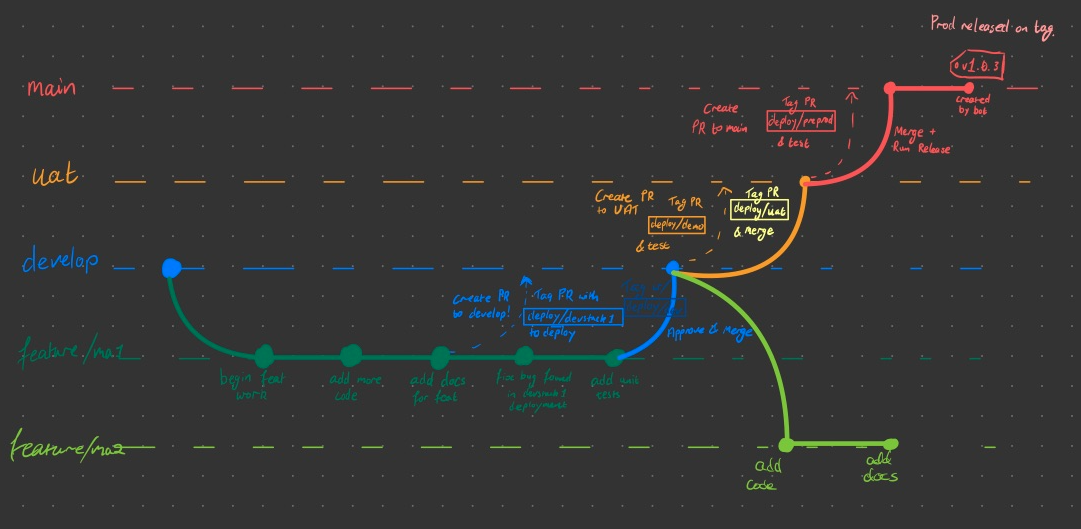 Prod released on tag.
v1.0.3
main
created
by bot
Create
PR to main
Tag PR
deploy/preprod
& test
Merge +
Run Release
uat
Create PR
to UAT
Tag PR
deploy/demo
& test
Tag PR
deploy/uat
& Merge
develop
Create PR
to develop!
Tag PR with
deploy/devstack1
to deploy
Tag
Approve & Merge
feature/ma1
begin feat
work
add more
code
add docs
for feat
fix bug found
in devstack1
deployment
add unit
tests
feature/ma2
add
code
add
docs